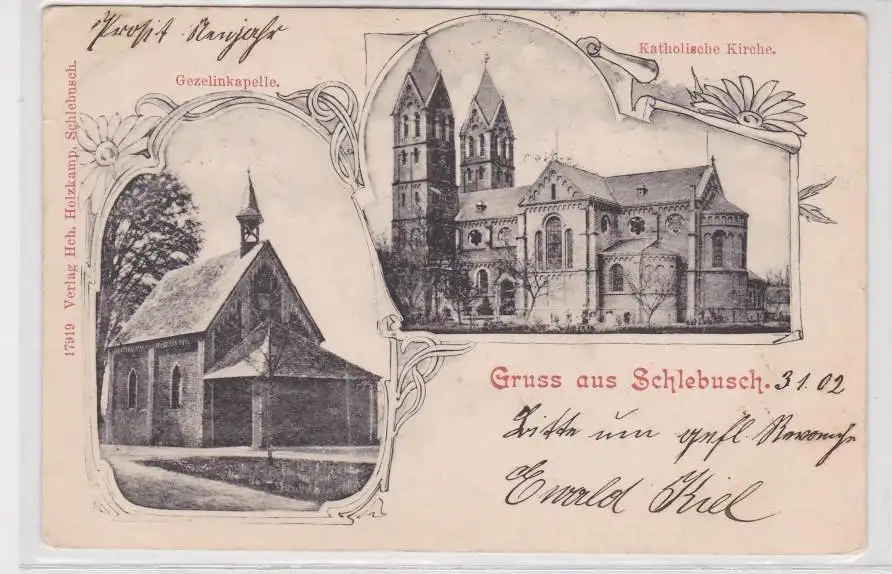 Prosit Neujahr
Katholische Kirche.
Gezelinkapelle.
17919 Verlag Hch. Holzkamp, Schlebusch.
Gruss aus Schlebusch. 3 1. 02
Bitte um gefl. Revanche
Ewald Kiel